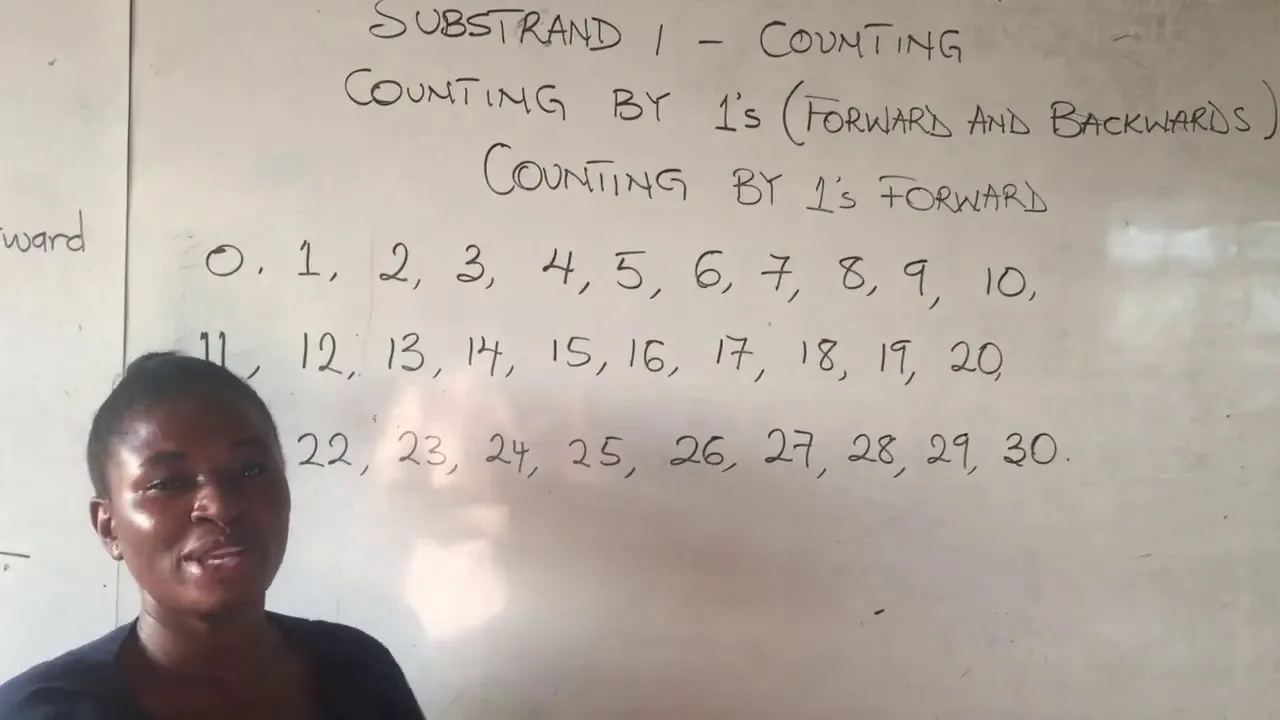 SUBSTRAND 1 - COUNTING
COUNTING BY 1's (FORWARD AND BACKWARDS)
COUNTING BY 1's FORWARD
ward
0. 1, 2, 3, 4, 5, 6, 7, 8, 9, 10,
11, 12, 13, 14, 15, 16, 17, 18, 19, 20,
22, 23, 24, 25, 26, 27, 28, 29, 30.